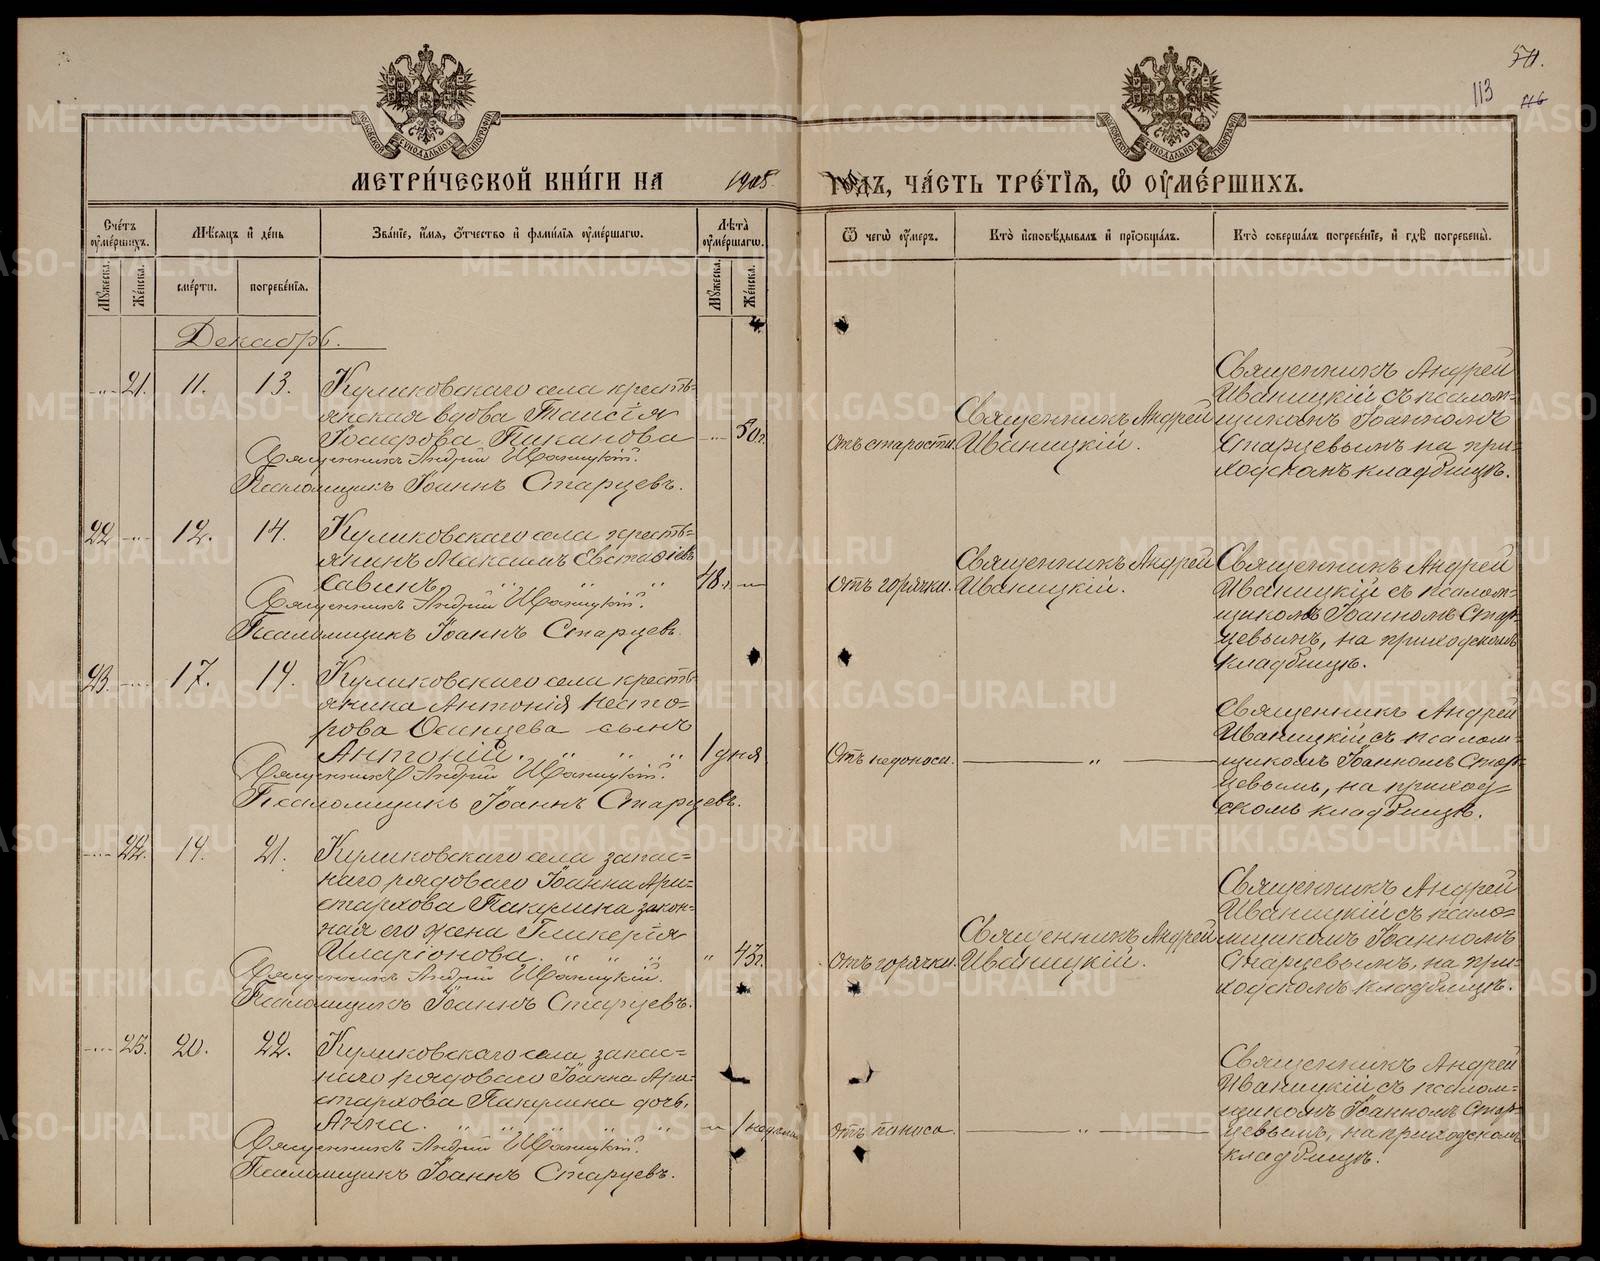 50.
113
116
МЕТРИ́ЧЕСКОЙ КНИ́ГИ НА 1905 ГОДЪ, ЧА́СТЬ ТРЕ́ТІѦ, Ѽ ОУМЕ́РШИХЪ.
Сче́тъ оуме́ршихъ.
Мѣ́сѧцъ и де́нь
Зва́ніе, и́мѧ, о́тчество и фами́лїѧ оуме́ршагѡ.
Лѣ́та оуме́ршагѡ.
Ѿ чегѡ̀ оу́меръ.
Кто̀ и҆сповѣ́дывалъ и҆ прїѡбща́лъ.
Кто̀ соверша́лъ погребе́нїе, и҆ гдѣ̀ погребены̀.
Му́жеска.
Же́нска.
сме́рти.
погребе́нїѧ.
Му́жеска.
Же́нска.
Декабрь.
21. 11. 13. Куликовскаго села кресть=
янская вдова Таисія
Іосифова Пиканова 50 г.
Священникъ Андрей Иваницкій.
Псаломщикъ Іоаннъ Старцевъ.
отъ старости.
Священникъ Андрей
Иваницкій.
Священникъ Андрей
Иваницкій съ псалом=
щикомъ Іоанномъ
Старцевымъ на при=
ходскомъ кладбищѣ.
22 12. 14. Куликовскаго села кресть=
янинъ Максимъ Евстафіевъ
Савинъ. 48 г.
Священникъ Андрей Иваницкій.
Псаломщикъ Іоаннъ Старцевъ.
Отъ горячки.
Священникъ Андрей
Иваницкій.
Священникъ Андрей
Иваницкій съ псалом=
щикомъ Іоанномъ Стар=
цевымъ, на приходскомъ
кладбищѣ.
23. 17. 19. Куликовскаго села кресть=
янина Антонія Несто=
рова Осинцева сынъ
Антоній. 1 дня
Священникъ Андрей Иваницкій.
Псаломщикъ Іоаннъ Старцевъ.
Отъ недоноса.
Священникъ Андрей
Иваницкій съ псалом=
щикомъ Іоанномъ Стар=
цевымъ, на приход=
скомъ кладбищѣ.
22. 19. 21. Куликовскаго села запас=
наго рядоваго Іоанна Ари=
стархова Пакулина закон=
ная его жена Гликерія
Иларіонова. 43 г.
Священникъ Андрей Иваницкій.
Псаломщикъ Іоаннъ Старцевъ.
Отъ горячки.
Священникъ Андрей
Иваницкій.
Священникъ Андрей
Иваницкій съ псало=
мщикомъ Іоанномъ
Старцевымъ, на при=
ходскомъ кладбищѣ.
23. 20. 22. Куликовскаго села запас=
наго рядоваго Іоанна Ари=
стархова Пакулина дочь,
Анна. 1 недѣли
Священникъ Андрей Иваницкій.
Псаломщикъ Іоаннъ Старцевъ.
Отъ поноса.
Священникъ Андрей
Иваницкій съ псалом=
щикомъ Іоанномъ Стар=
цевымъ, на приходскомъ
кладбищѣ.
METRIKI.GASO-URAL.RU